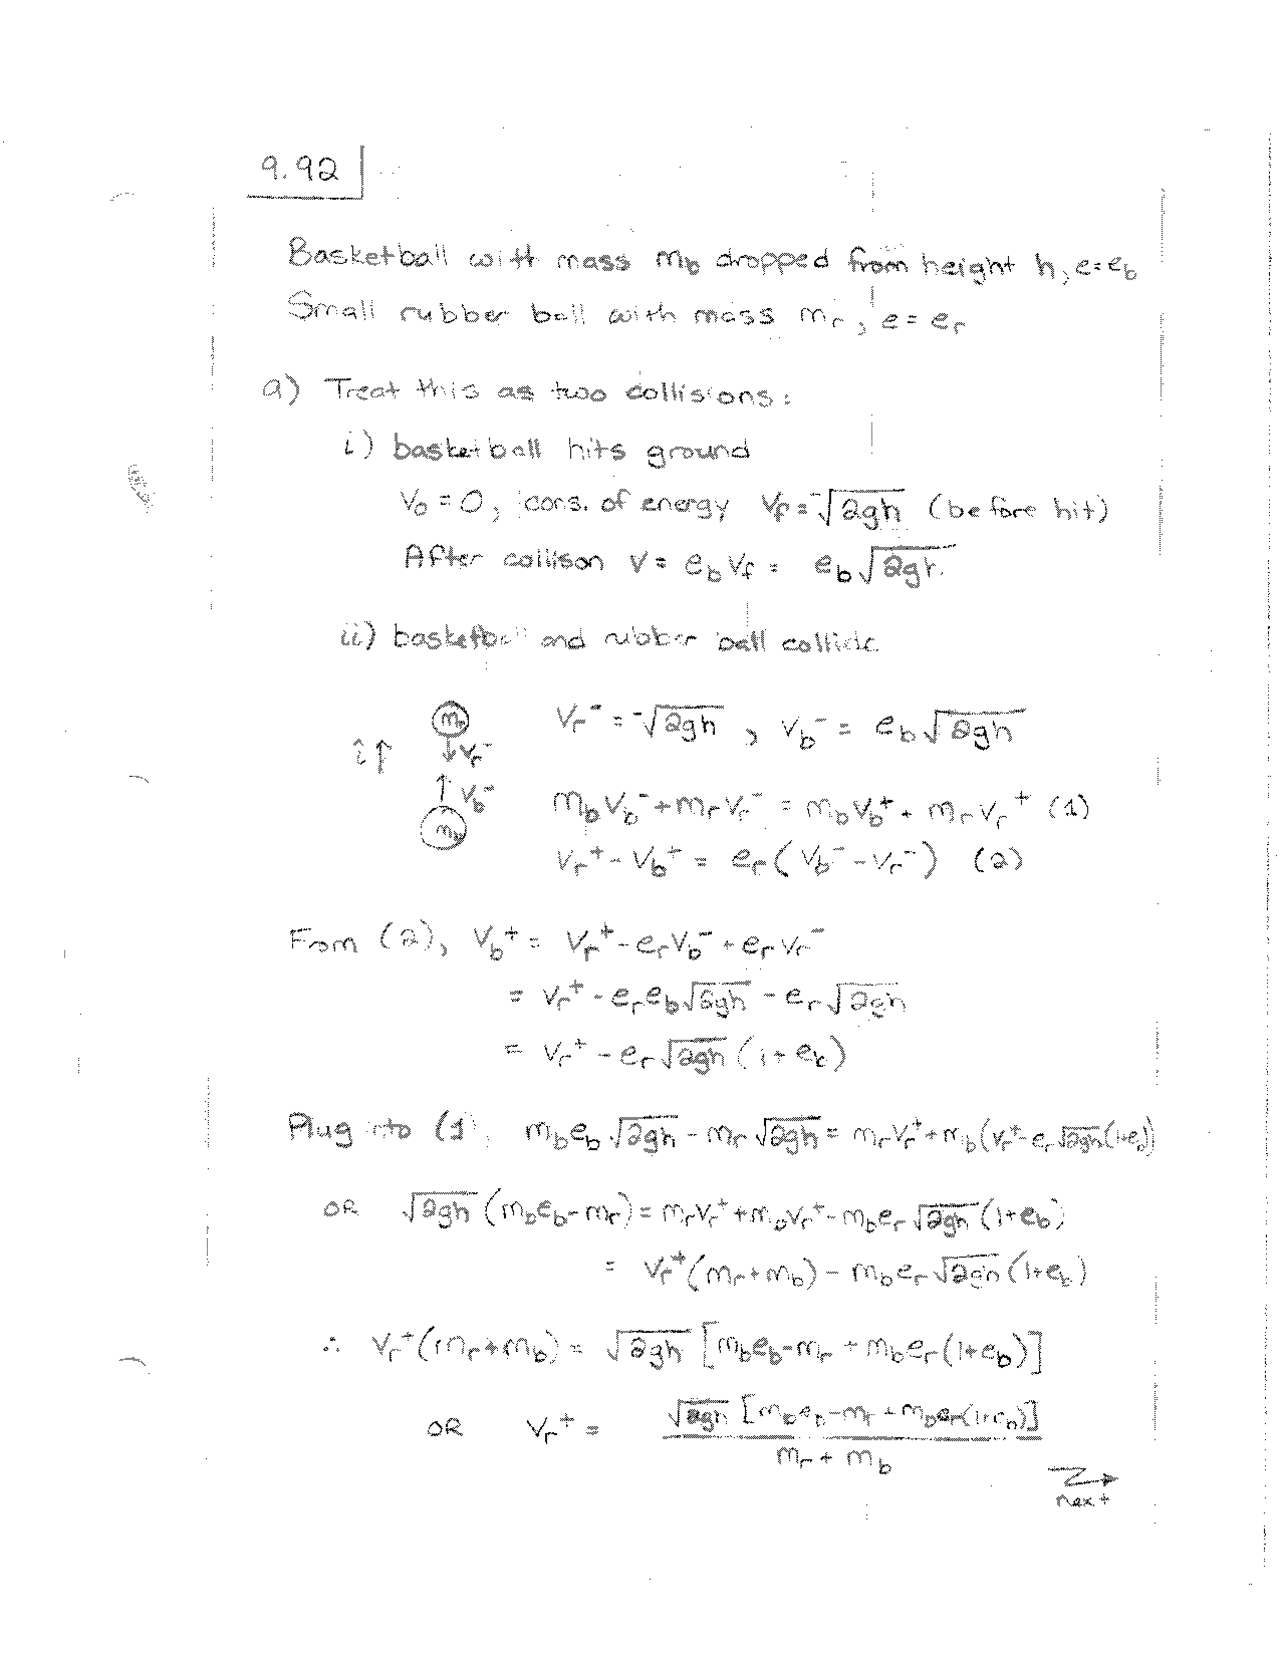 9.92
Basketball with mass m_b dropped from height h, e=e_b
Small rubber ball with mass m_r, e = e_r
a) Treat this as two collisions:
i) basketball hits ground
V_0 = 0, cons. of energy V_f = -√2gh (before hit)
After collison V = e_b V_f = e_b √2gh
ii) basketball and rubber ball collide
m_r V_r^- = -√2gh , V_b^- = e_b √2gh
î↑ ↓V_r^-
↑ V_b^- m_b V_b^- + m_r V_r^- = m_b V_b^+ + m_r V_r^+ (1)
m_b V_r^+ - V_b^+ = e_r ( V_b^- - V_r^- ) (2)
From (2), V_b^+ = V_r^+ - e_r V_b^- + e_r V_r^-
= V_r^+ - e_r e_b √2gh - e_r √2gh
= V_r^+ - e_r √2gh (1 + e_b)
Plug into (1), m_b e_b √2gh - m_r √2gh = m_r V_r^+ + m_b (V_r^+ - e_r √2gh (1+e_b)
OR √2gh (m_b e_b - m_r) = m_r V_r^+ + m_b V_r^+ - m_b e_r √2gh (1+e_b)
= V_r^+ (m_r + m_b) - m_b e_r √2gh (1+e_b)
∴ V_r^+ (m_r + m_b) = √2gh [m_b e_b - m_r + m_b e_r (1+e_b)]
OR V_r^+ = √2gh [m_b e_b - m_r + m_b e_r (1+e_b)] / m_r + m_b
next